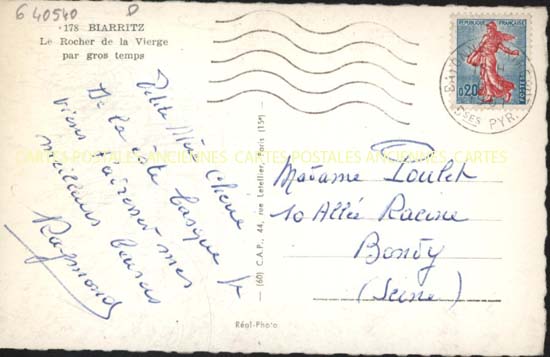 6 40540
178 BIARRITZ
Le Rocher de la Vierge
par gros temps
Petite Mère Chérie
De la côte basque je
viens t'adresser mes
meilleurs baisers
Raymond
(60) C.A.P., 44, rue Letellier, Paris (15e)
REPUBLIQUE FRANÇAISE
0,20
POSTES
SSES PYR.
Madame Poulet
10 Allée Racine
Bondy
(Seine)
Réal-Photo
CARTES POSTALES ANCIENNES CARTES POSTALES ANCIENNES CARTES